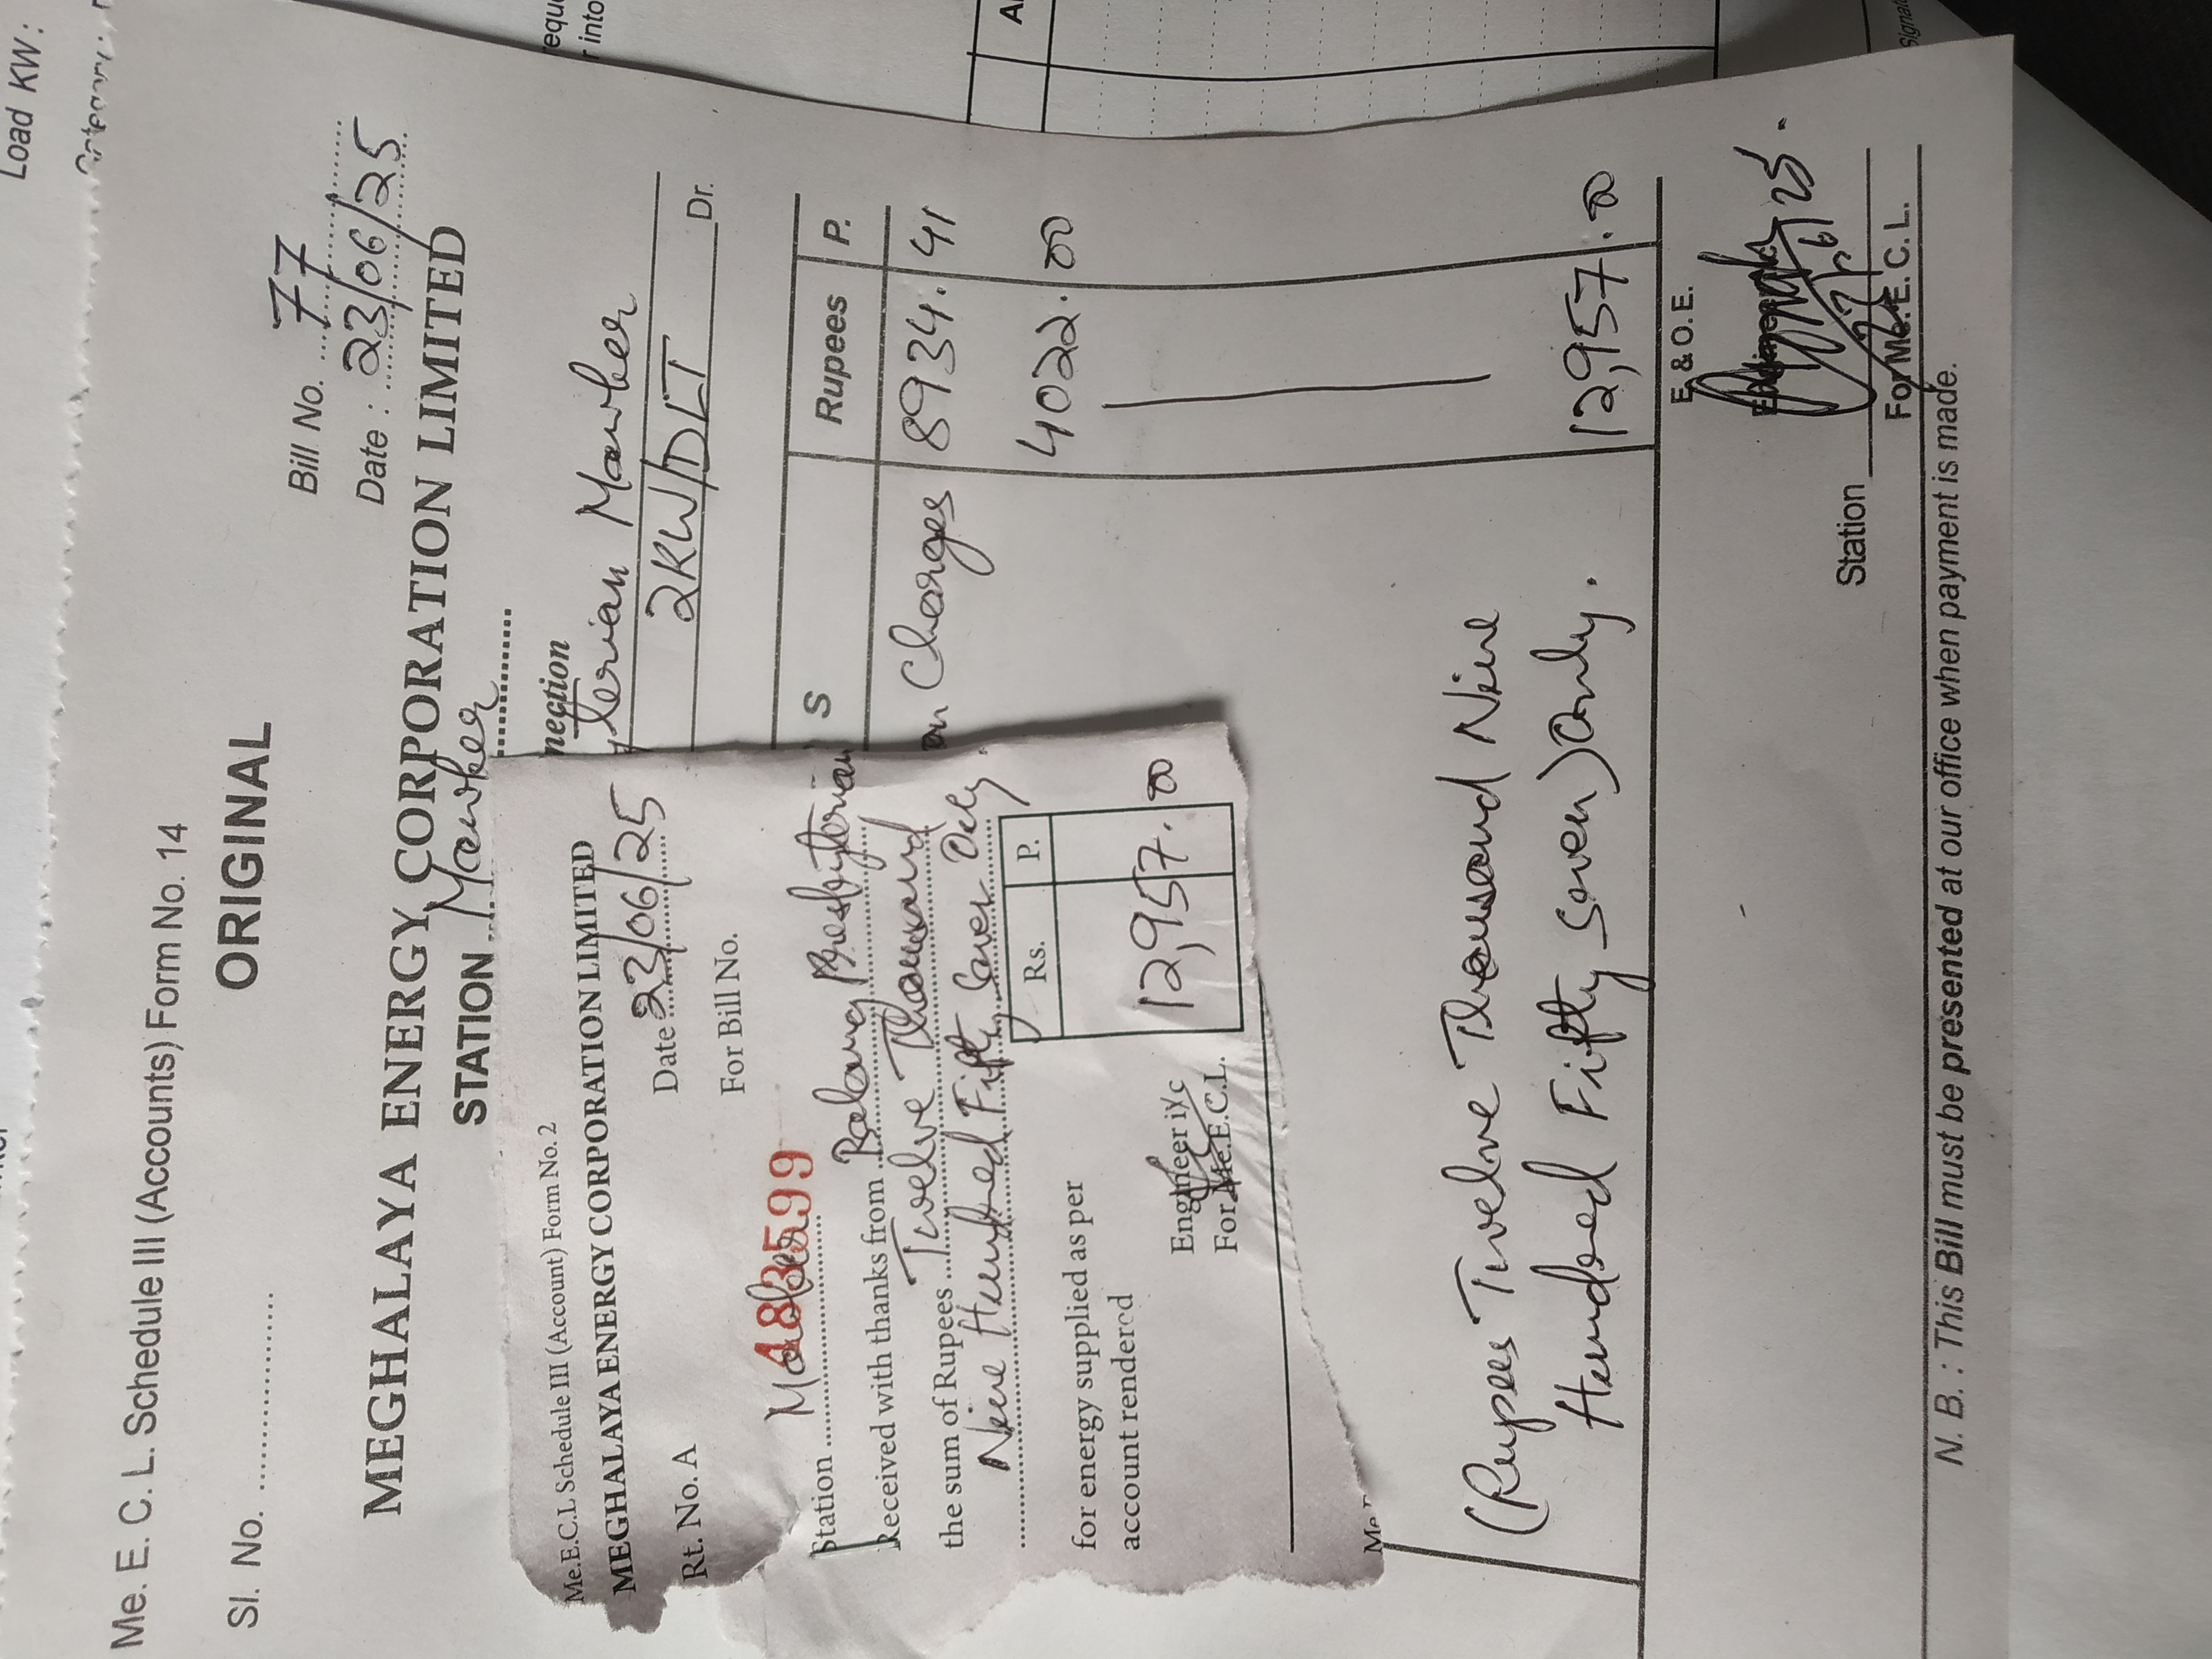 Load KW :
Me. E. C. L. Schedule III (Accounts) Form No. 14
ORIGINAL
Sl. No. ....................
Bill No. ....77....
Date : ...23/06/25
MEGHALAYA ENERGY CORPORATION LIMITED
STATION ... Mawker ...
nection
yterian Mawber
2KW/DLT
Dr.
S Rupees P.
on Charges 8934. 41
4022. 00
12,957. 00
(Rupees Twelve Thousand Nine
Hundred Fifty Seven) Only.
E. & O. E.
Station
For Me. E. C. L.
N. B. : This Bill must be presented at our office when payment is made.
Me.E.C.L Schedule III (Account) Form No. 2
MEGHALAYA ENERGY CORPORATION LIMITED
Rt. No. A
Date 23/06/25
For Bill No.
483599
Station ....
Received with thanks from Balang Presbyterian
the sum of Rupees Twelve Thousand
Nine Hundred Fifty Seven Only
Rs. P.
12,957. 00
for energy supplied as per
account rendered
Engineer i/c
For Me.E.C.L.